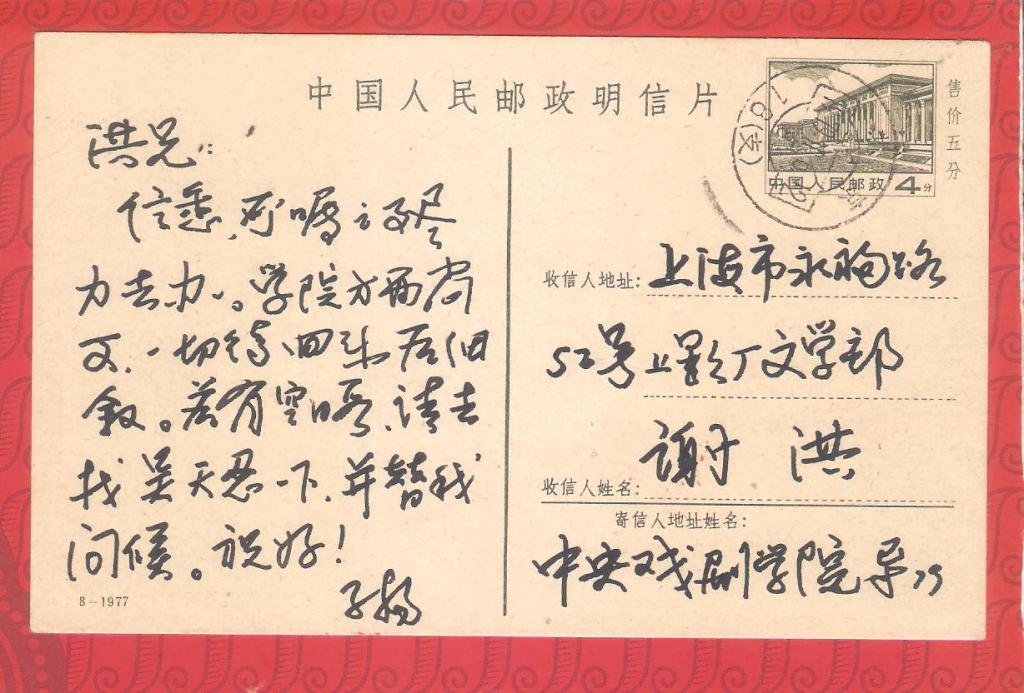 中国人民邮政明信片
售价五分
中国人民邮政 4分
洪兄：
信悉，所嘱之事尽
力去办。学院方面有
变，一切待回来后细
叙。若有空暇，请去
找吴天忍一下，并替我
问候。祝好！
子扬
8－1977
收信人地址：上海市永福路
52号上影厂文学部
收信人姓名：谢洪
寄信人地址姓名：
中央戏剧学院导79